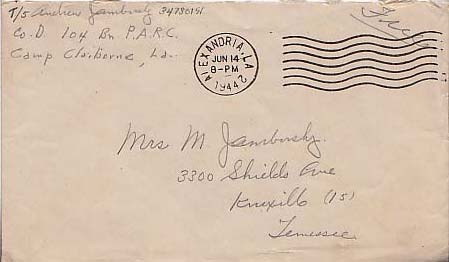 T/5 Andrew Jambusky 34780151
Free
Co. D 104 Bn. P.A.R.C.
Camp Claiborne, La.
ALEXANDRIA, LA
JUN 14
8-PM
1944
2
Mrs M Jambusky.
3300 Shields Ave
Knoxville (15)
Tennessee